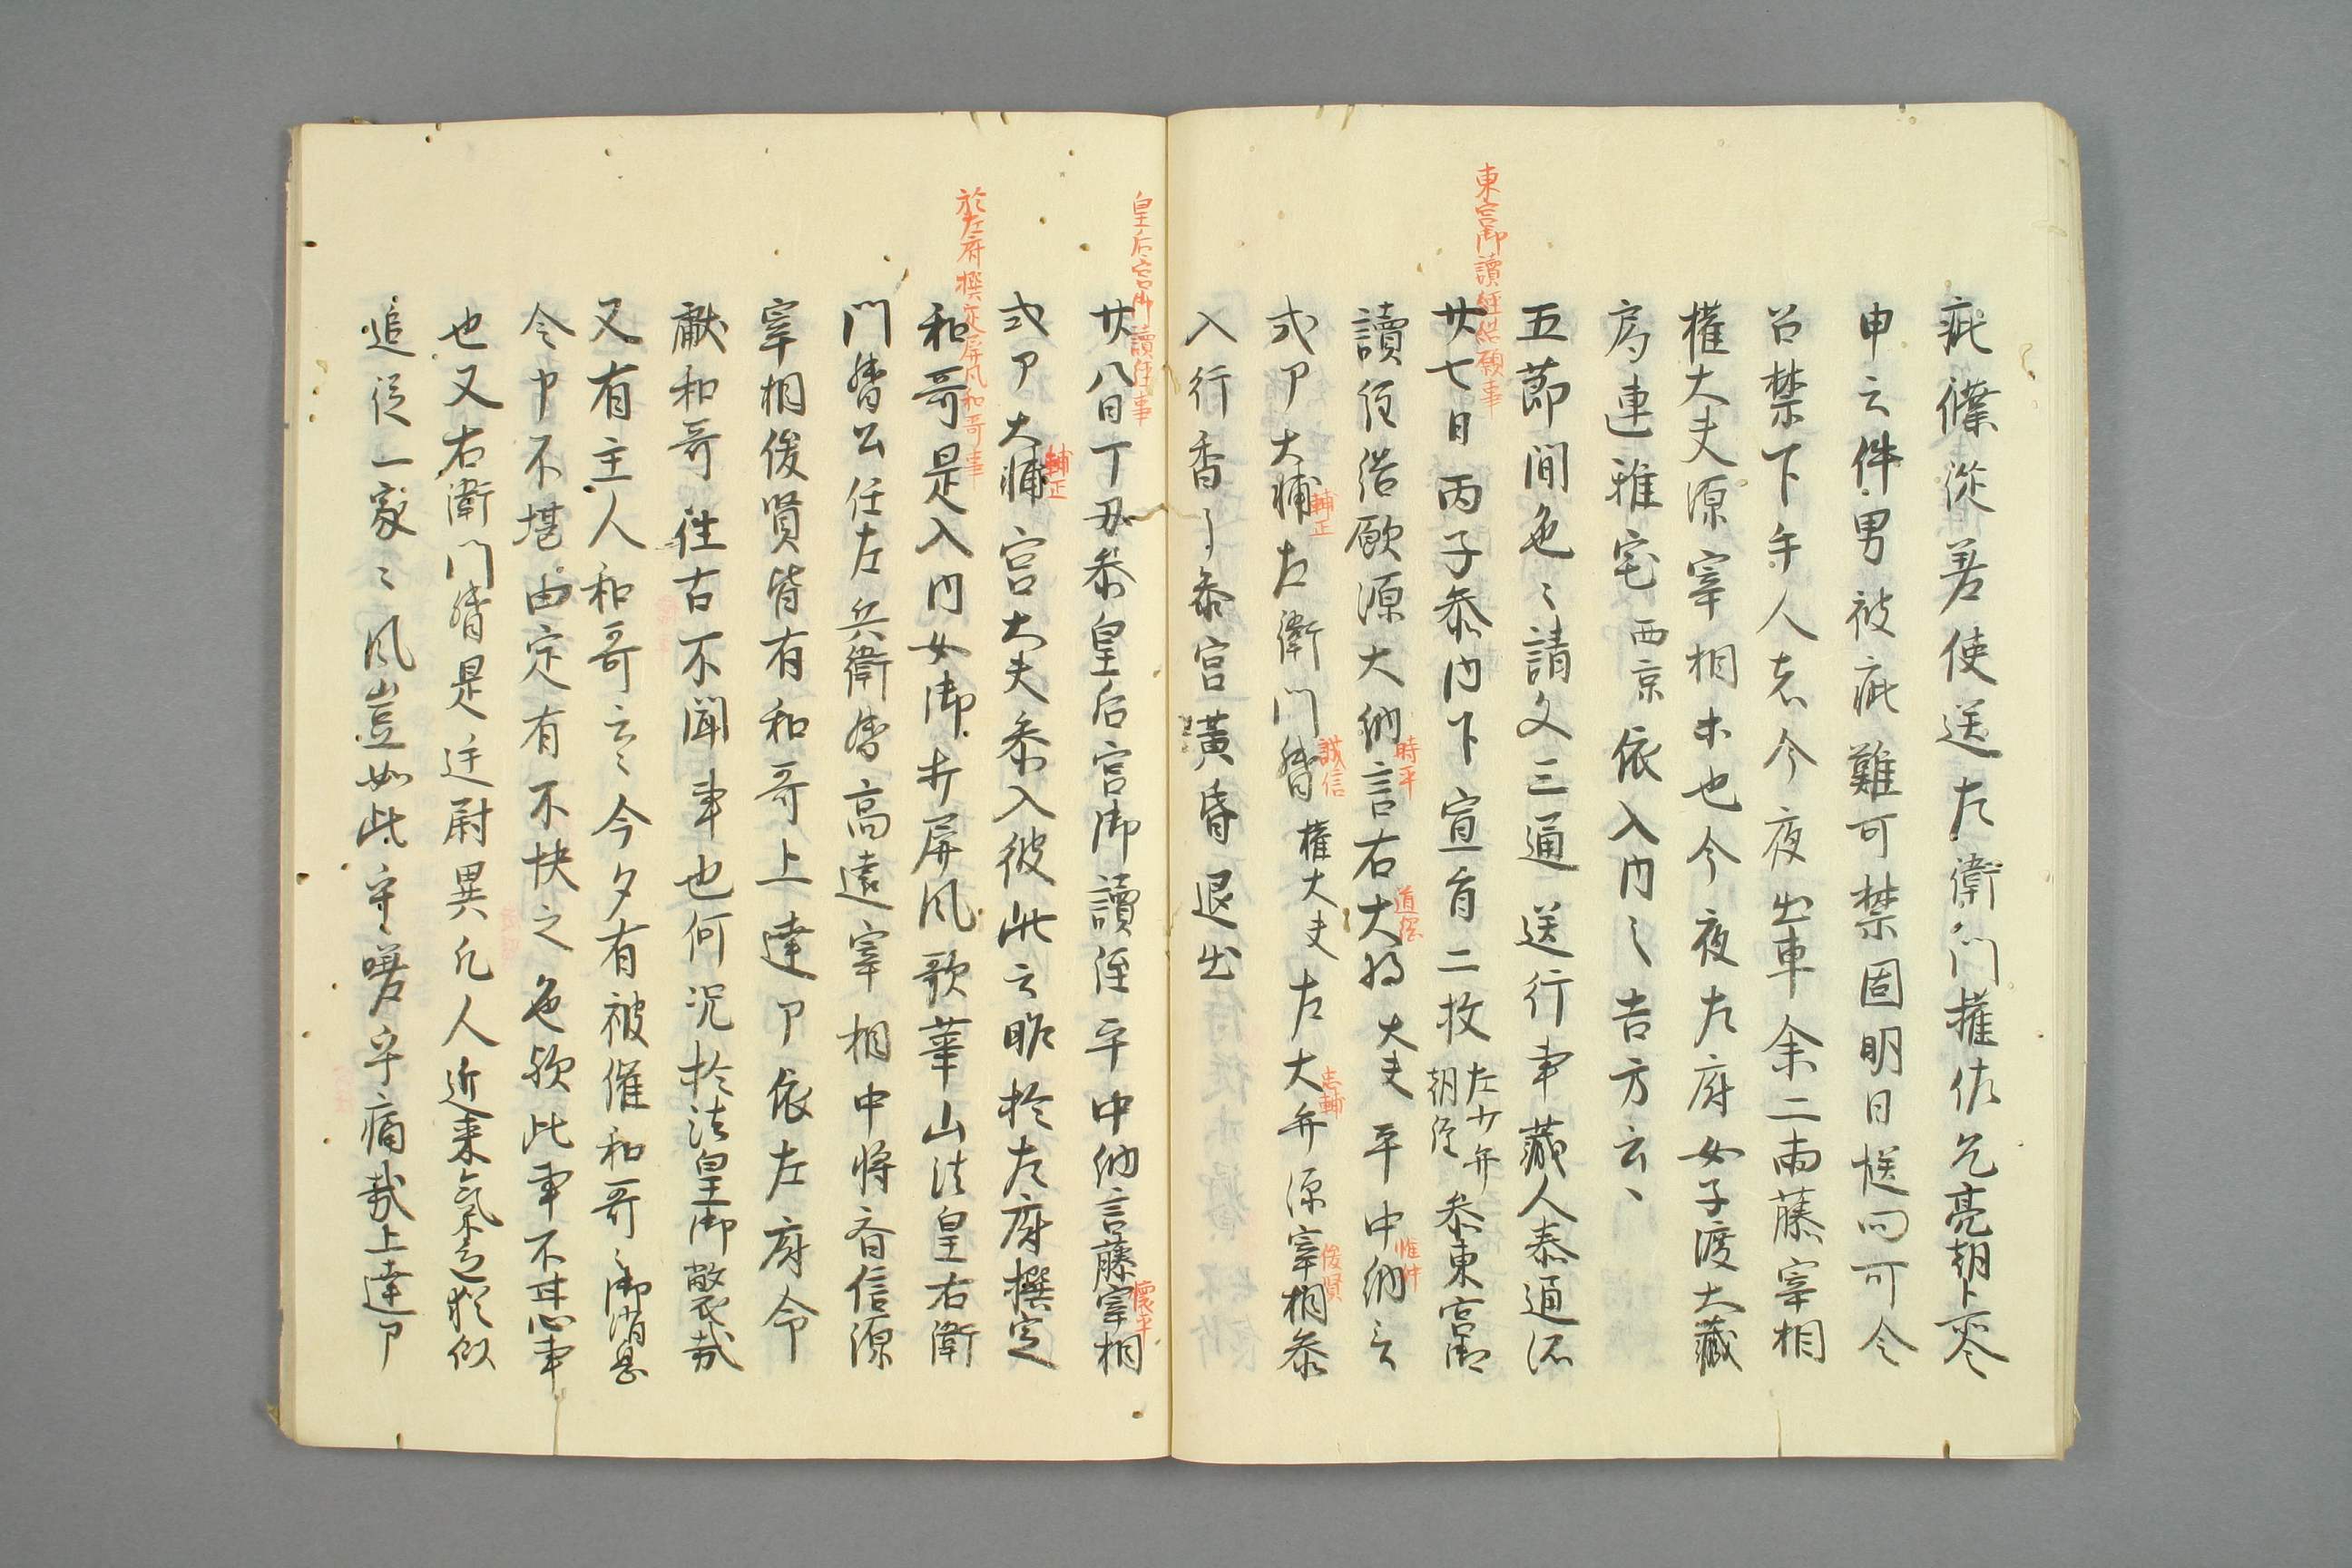 疵僕從若使送左衛門權佐允亮朝臣
申云件男被疵難可禁固明日送同可令
召禁下手人者今夜出車余二両藤宰相
權大夫源宰相未也今夜左府女子渡大藏
連雅宅西京依入内之吉方云、
五節間色〻請文三通送行事藏人泰通
東宮御讀經結願事
廿七日丙子參内下宣旨二枚左少弁朝經參東宮御
讀経結願源大納言時平右大将道綱大夫平中納言惟仲
式ア大輔輔正左衛門督誠信權大夫左大弁忠輔源宰相俊賢參
入行香了參宮黄昏退出
皇后宮御讀経事
廿八日丁丑參皇后宮御讀経平中納言藤宰相懐平
式ア大輔輔正宮大夫參入彼此云昨於左府撰定
於左府撰定屏風和哥事
和哥是入内女御料屏風歌華山法皇右衛
門督公任左兵衛督高遠宰相中将斉信源
宰相俊賢皆有和哥上達ア依左府命
獻和哥往古不聞事也何况於法皇御製哉
又有主人和哥云〻今夕有被催和哥〻御消息
令申不堪由定有不快之色歟此事不甘心事
也又右衛門督是廷尉異凡人近来氣色猶似
追從一家〻風豈如此乎嗟乎痛哉上達ア